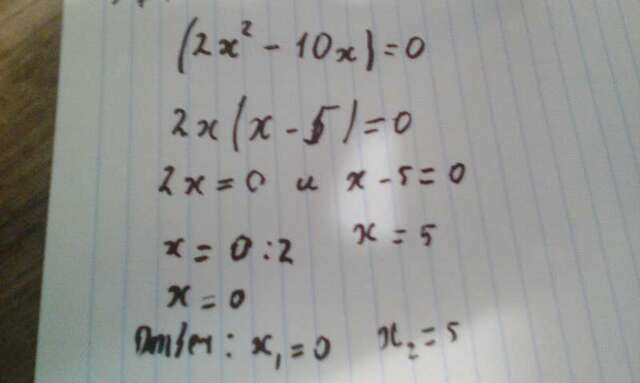 (2x² - 10x) = 0
2x(x - 5) = 0
2x = 0 и x - 5 = 0
x = 0 : 2 x = 5
x = 0
Ответ: x₁ = 0 x₂ = 5